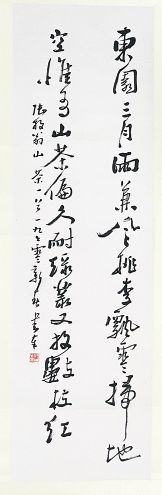 東園三月雨兼風桃李飄零掃地
空惟有山茶偏久耐綠叢又放數枝紅
陸放翁山茶一